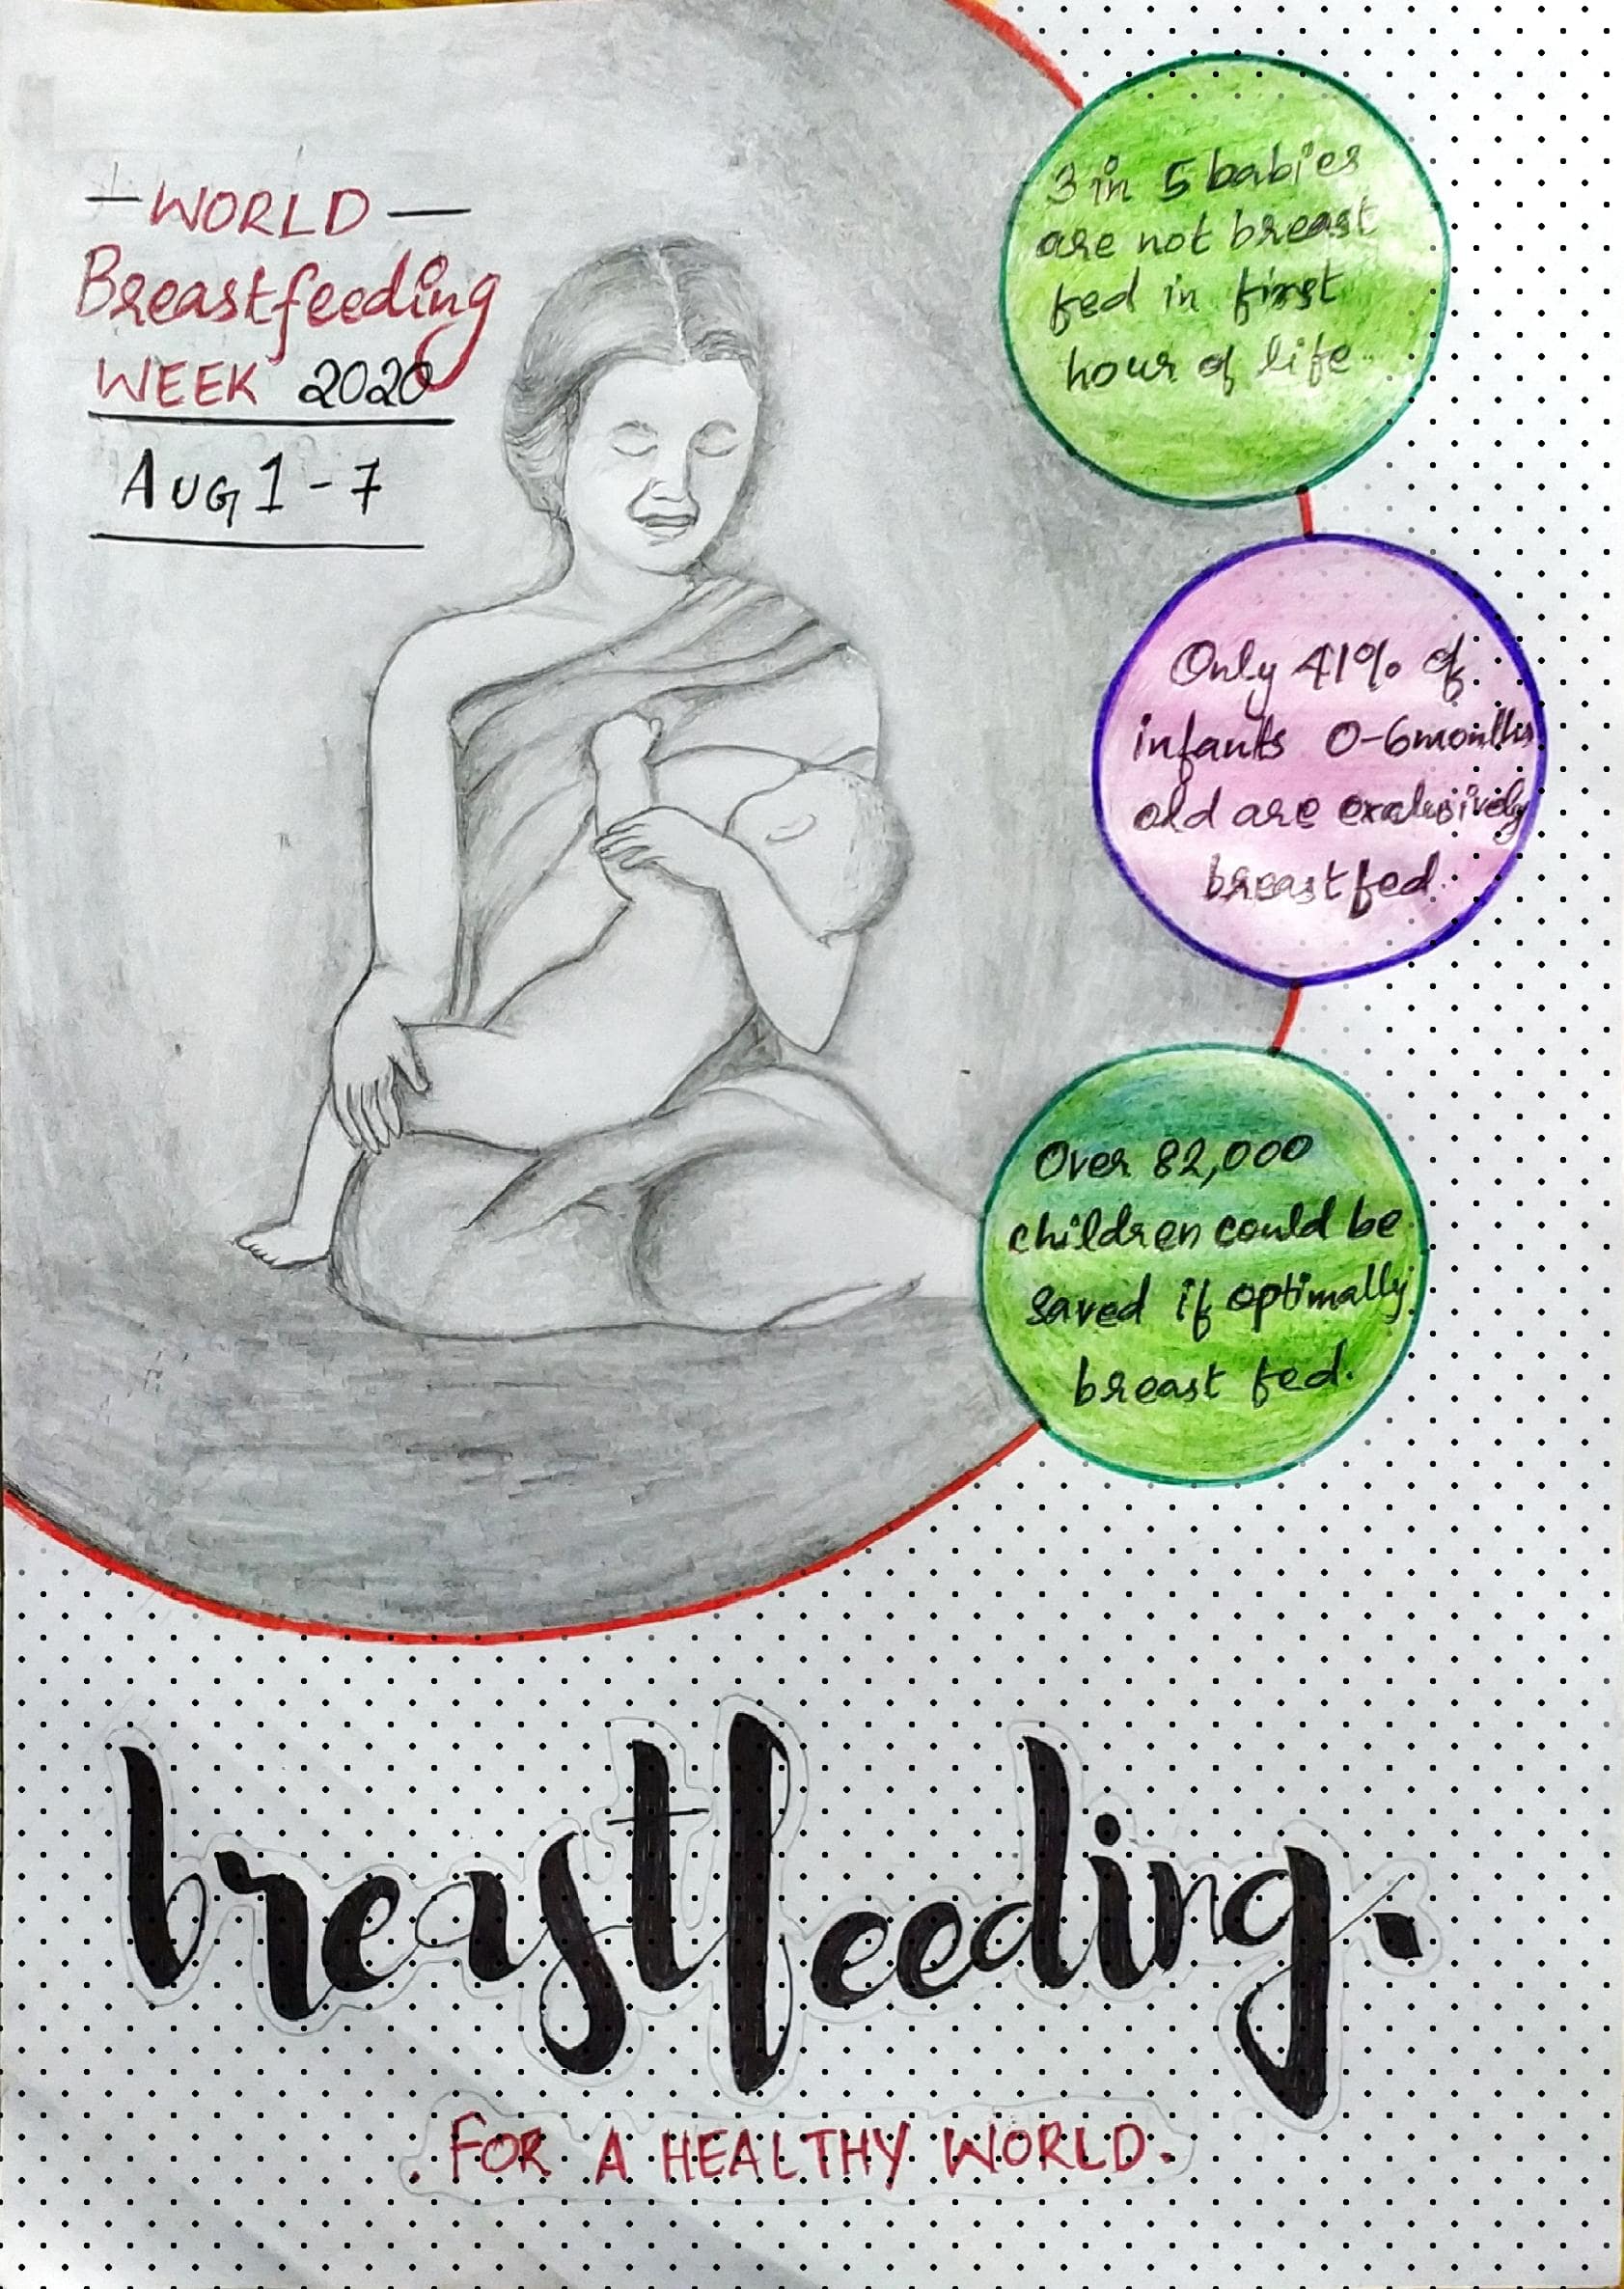 — WORLD —
Breastfeeding
WEEK 2020
AUG 1 - 7
3 in 5 babies
are not breast
fed in first
hour of life.
Only 41% of
infants 0-6months
old are exclusively
breastfed.
Over 82,000
children could be
saved if optimally
breast fed.
breastfeeding.
. FOR A HEALTHY WORLD.